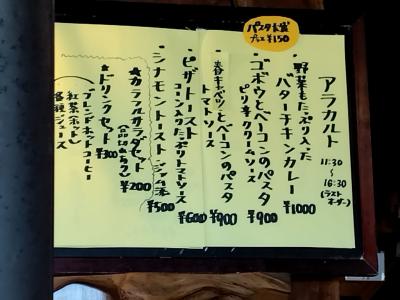 パスタ大盛
プラス ¥150
アラカルト
11:30
~
16:30
(ラスト
オーダー)
・野菜もたっぷり入った
バターチキンカレー ¥1000
・ゴボウとベーコンのパスタ
ピリ辛クリームソース ¥900
・春キャベツとベーコンのパスタ
トマトソース ¥900
・ピザトースト
コーン入りたっぷりトマトソース ¥600
・シナモントースト・ジャム添 ¥500
★カラフルサラダセット
¥200
★ドリンクセット ¥300
ブレンドホットコーヒー
紅茶(ホット)
各種ジュース